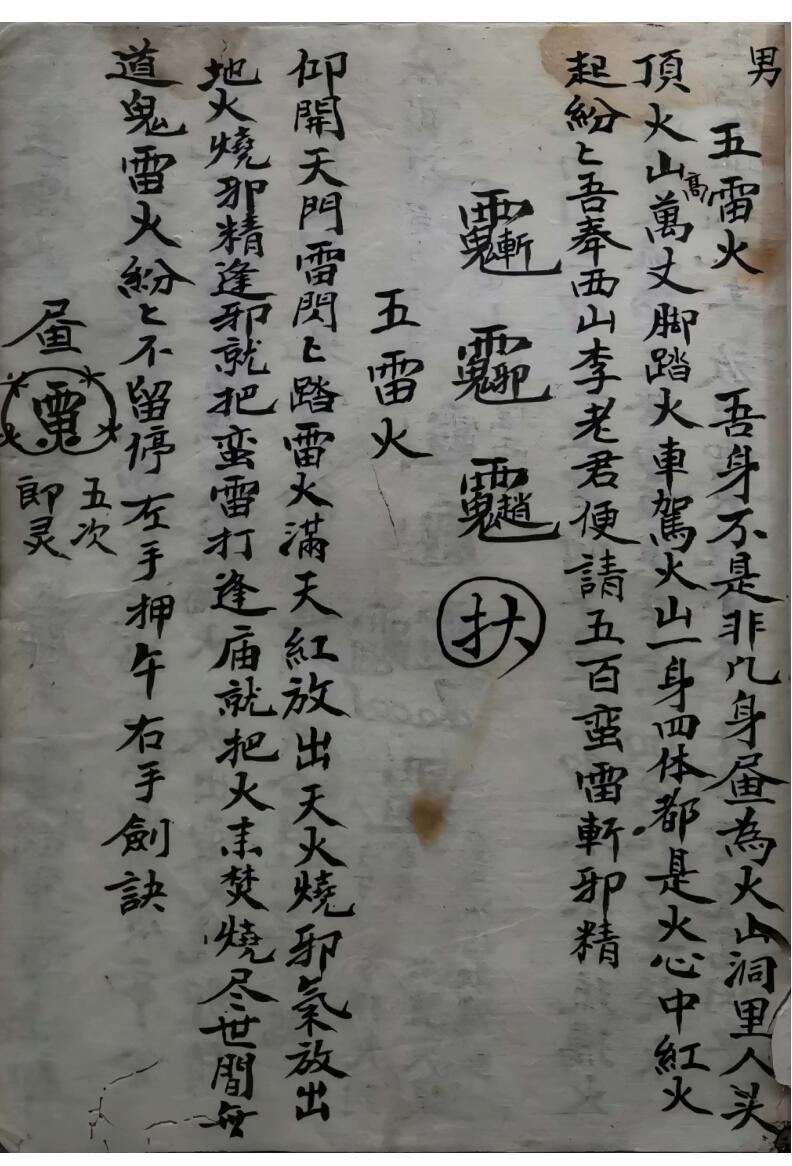 男
五雷火　吾身不是非凡身畫為火山洞里人头
頂火山高萬丈脚踏火車駕火山一身四体都是火心中紅火
起紛〻吾奉西山李老君便請五百蛮雷斬邪精
扶
五雷火
仰開天門雷閃〻踏雷火滿天紅放出天火燒邪氣放出
地火燒邪精逢邪就把蛮雷打逢庙就把火来焚燒尽世間無
道鬼雷火紛〻不留停左手押午右手劍訣
五次
即灵